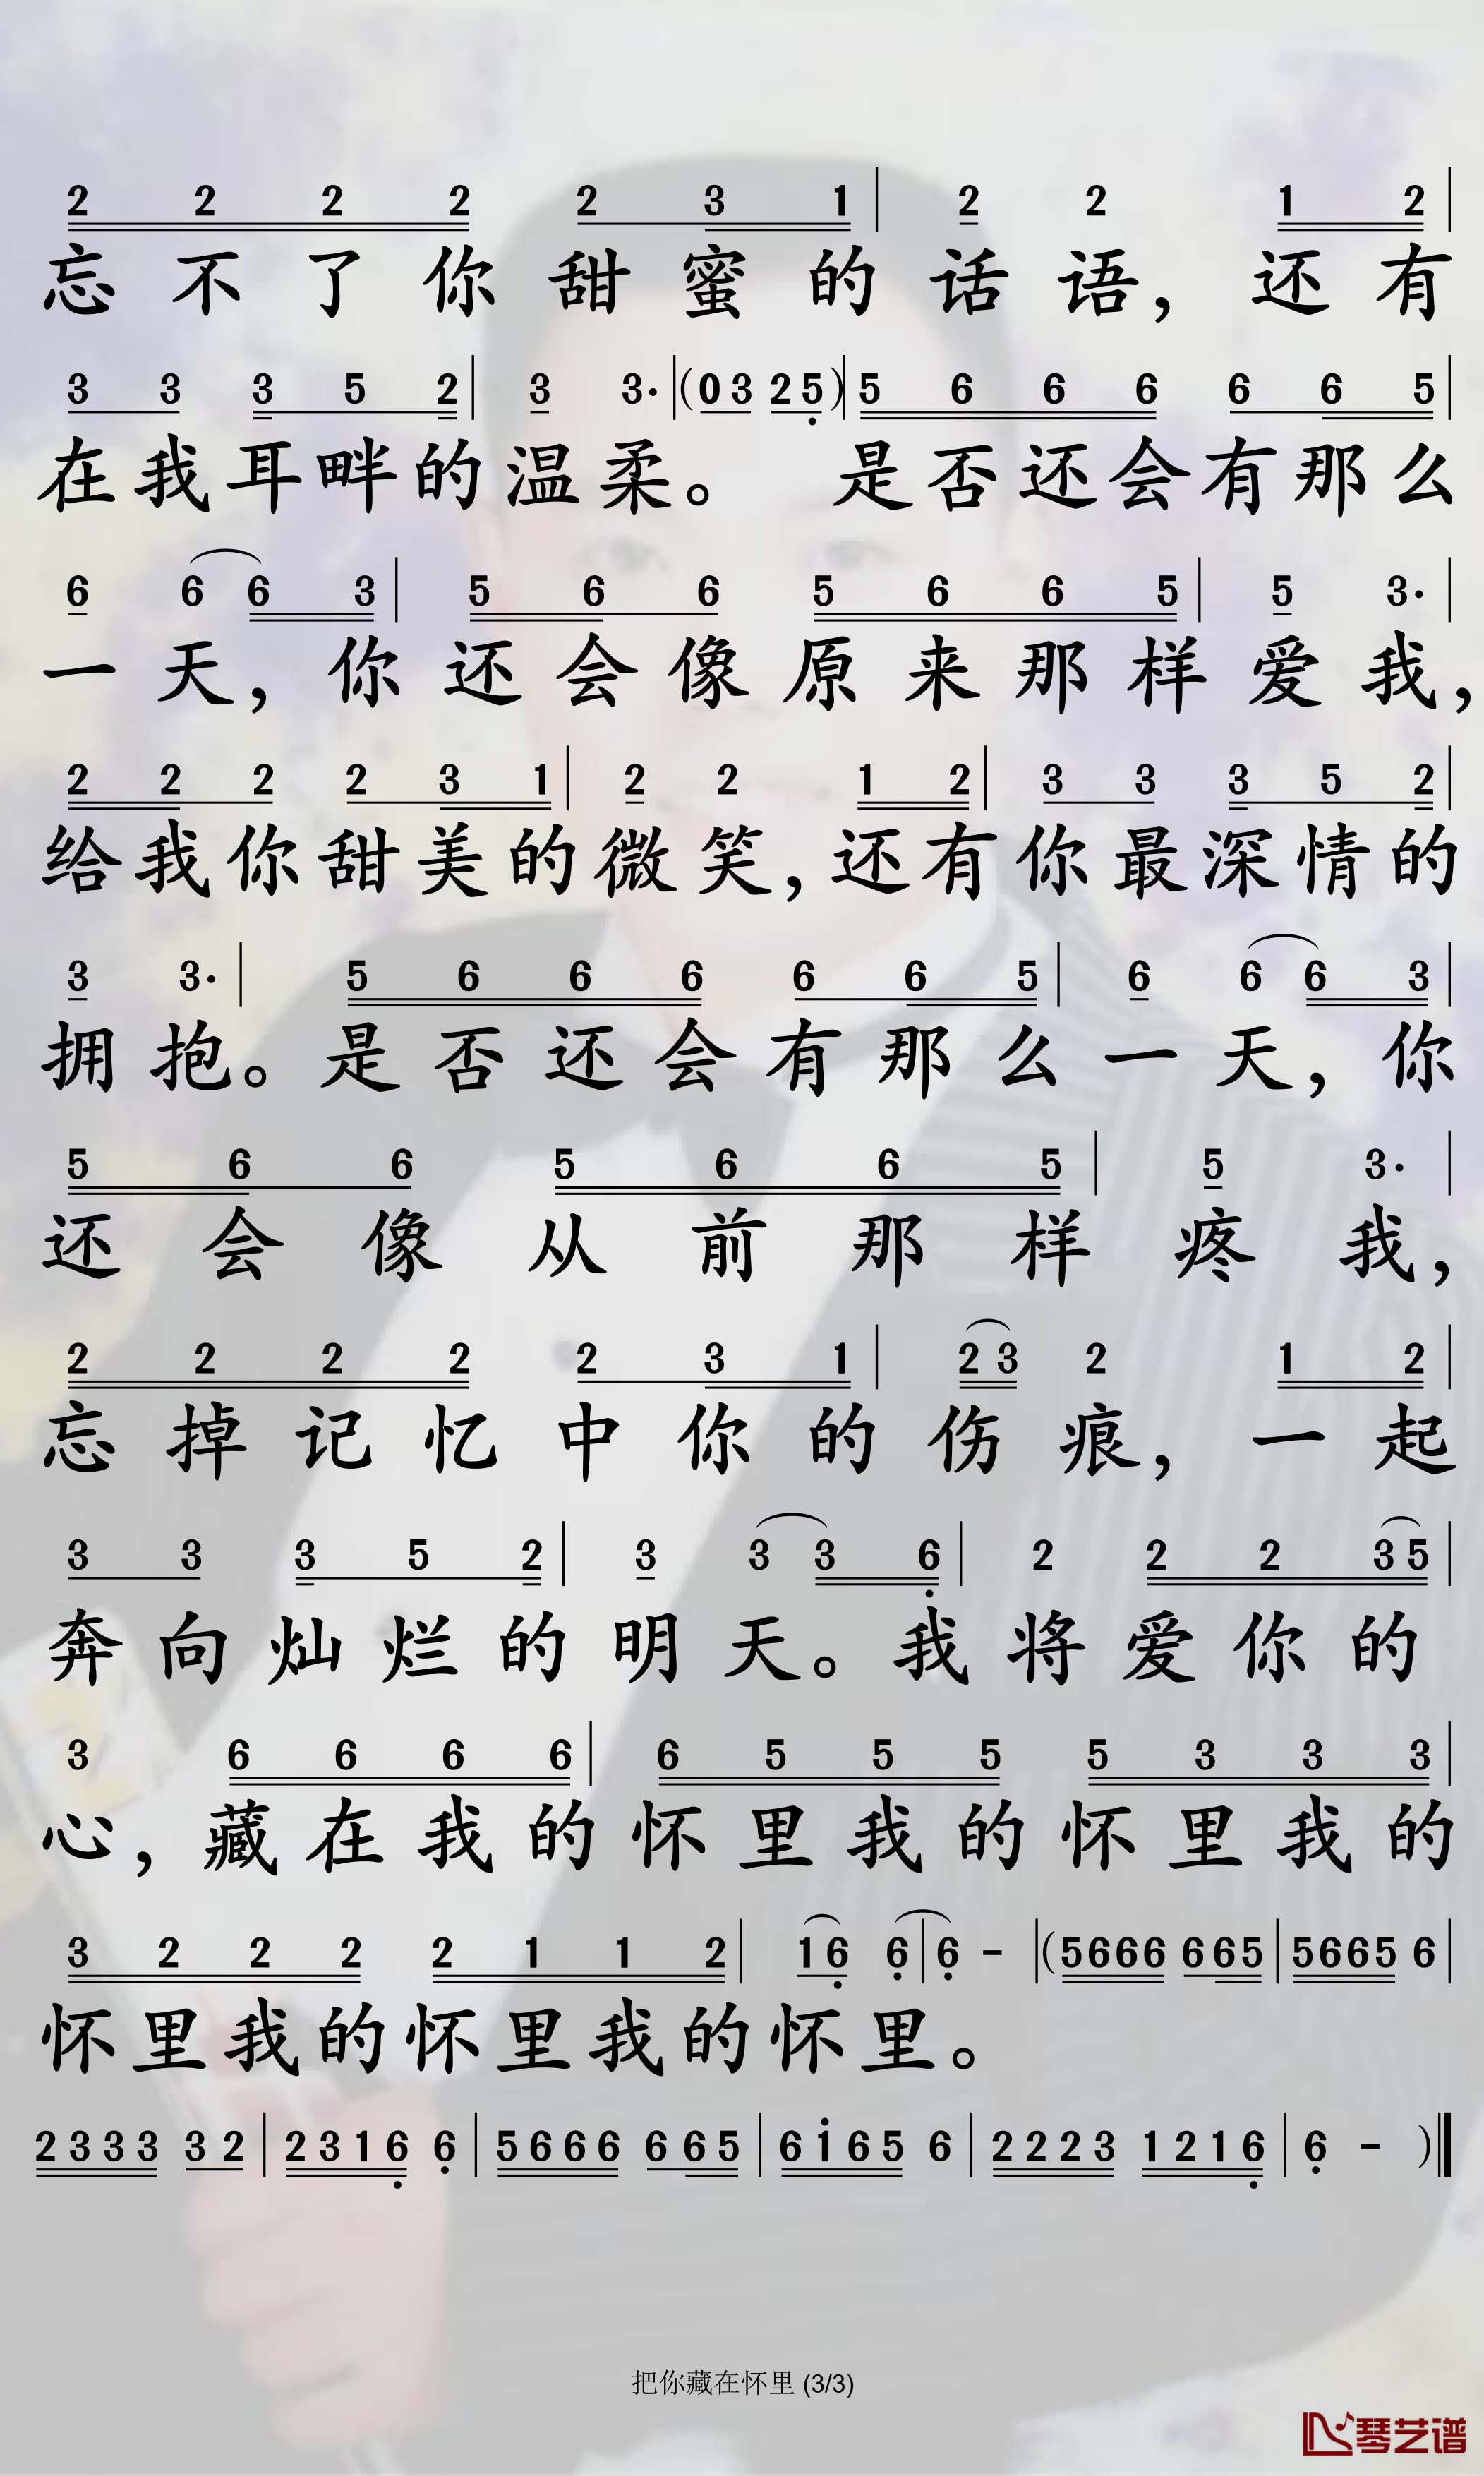 2 2 2 2 2 3 1 | 2 2 1 2 |
忘不了你甜蜜的话语，还有
3 3 3 5 2 | 3 3· | (0 3 2 5) | 5 6 6 6 6 6 5 |
在我耳畔的温柔。 是否还会有那么
6 6 6 3 | 5 6 6 5 6 6 5 | 5 3· |
一天，你还会像原来那样爱我，
2 2 2 2 3 1 | 2 2 1 2 | 3 3 3 5 2 |
给我你甜美的微笑，还有你最深情的
3 3· | 5 6 6 6 6 6 5 | 6 6 6 3 |
拥抱。是否还会有那么一天，你
5 6 6 5 6 6 5 | 5 3· |
还会像从前那样疼我，
2 2 2 2 2 3 1 | 2 3 2 1 2 |
忘掉记忆中你的伤痕，一起
3 3 3 5 2 | 3 3 3 6 | 2 2 2 3 5 |
奔向灿烂的明天。我将爱你的
3 6 6 6 6 | 6 5 5 5 5 3 3 3 |
心，藏在我的怀里我的怀里我的
3 2 2 2 2 1 1 2 | 1 6 6 | 6 - | (5 6 6 6 6 6 5 | 5 6 6 5 6 |
怀里我的怀里我的怀里。
2 3 3 3 3 2 | 2 3 1 6 6 | 5 6 6 6 6 6 5 | 6 i 6 5 6 | 2 2 2 3 1 2 1 6 | 6 - )‖
把你藏在怀里 (3/3)
琴艺谱